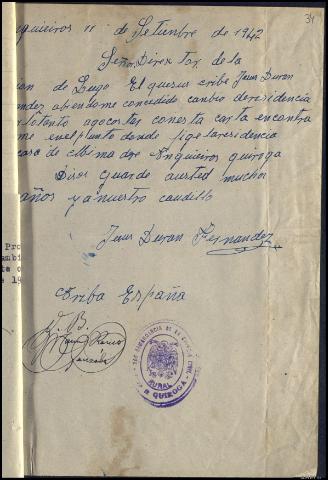 34
nquieiros 11 de Setienbre de 1942
Señor Direx tor de la
ion de Lugo El que sus cribe Jesus Duran
andez abiendome concedido canbio de residencia
r lo tanto agocostar con esta carta encontra
me en el punto donde fige la residencia
casa de mi ma dre Anquieiros quiroga
Dios guarde austed muchos
años y a nuestro caudillo
Jesus Duran Fernandez
Ariba España
V. B.
Gonzalez
Pro
ambi
te o
e 19
RURAL
QUIROGA